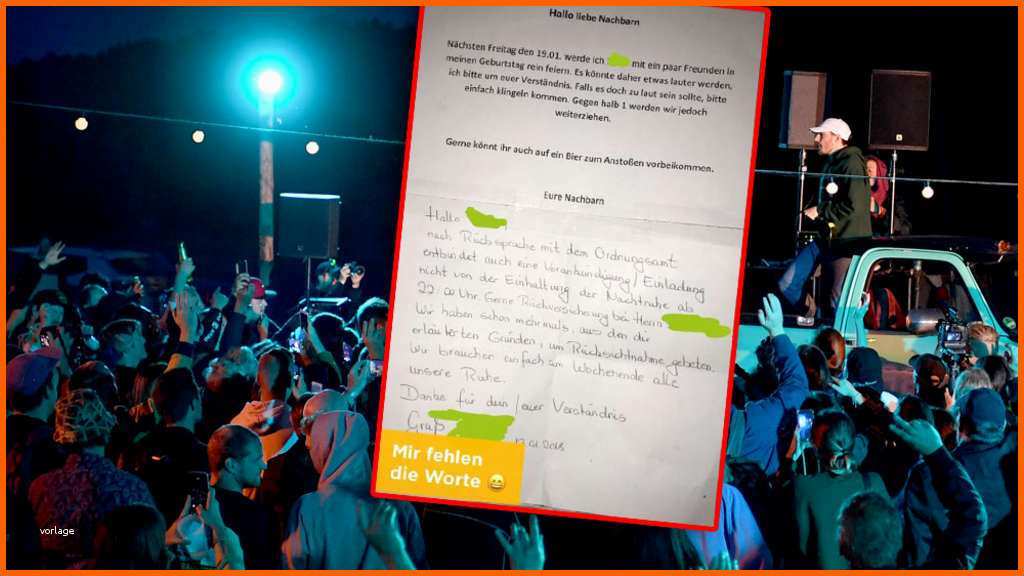 Hallo liebe Nachbarn
Nächsten Freitag den 19.01. werde ich mit ein paar Freunden in
meinen Geburtstag rein feiern. Es könnte daher etwas lauter werden,
ich bitte um euer Verständnis. Falls es doch zu laut sein sollte, bitte
einfach klingeln kommen. Gegen halb 1 werden wir jedoch
weiterziehen.
Gerne könnt ihr auch auf ein Bier zum Anstoßen vorbeikommen.
Eure Nachbarn
Hallo
nach Rücksprache mit dem Ordnungsamt
entbindet auch eine Vorankündigung/Einladung
nicht von der Einhaltung der Nachtruhe ab
22:00 Uhr. Gerne Rückversicherung bei Herrn
Wir haben schon mehrmals, aus den dir
erläuterten Gründen, um Rücksichtnahme gebeten.
Wir brauchen einfach am Wochenende alle
unsere Ruhe.
Danke für dein/euer Verständnis
Gruß
.01.2018
Mir fehlen
die Worte
vorlage